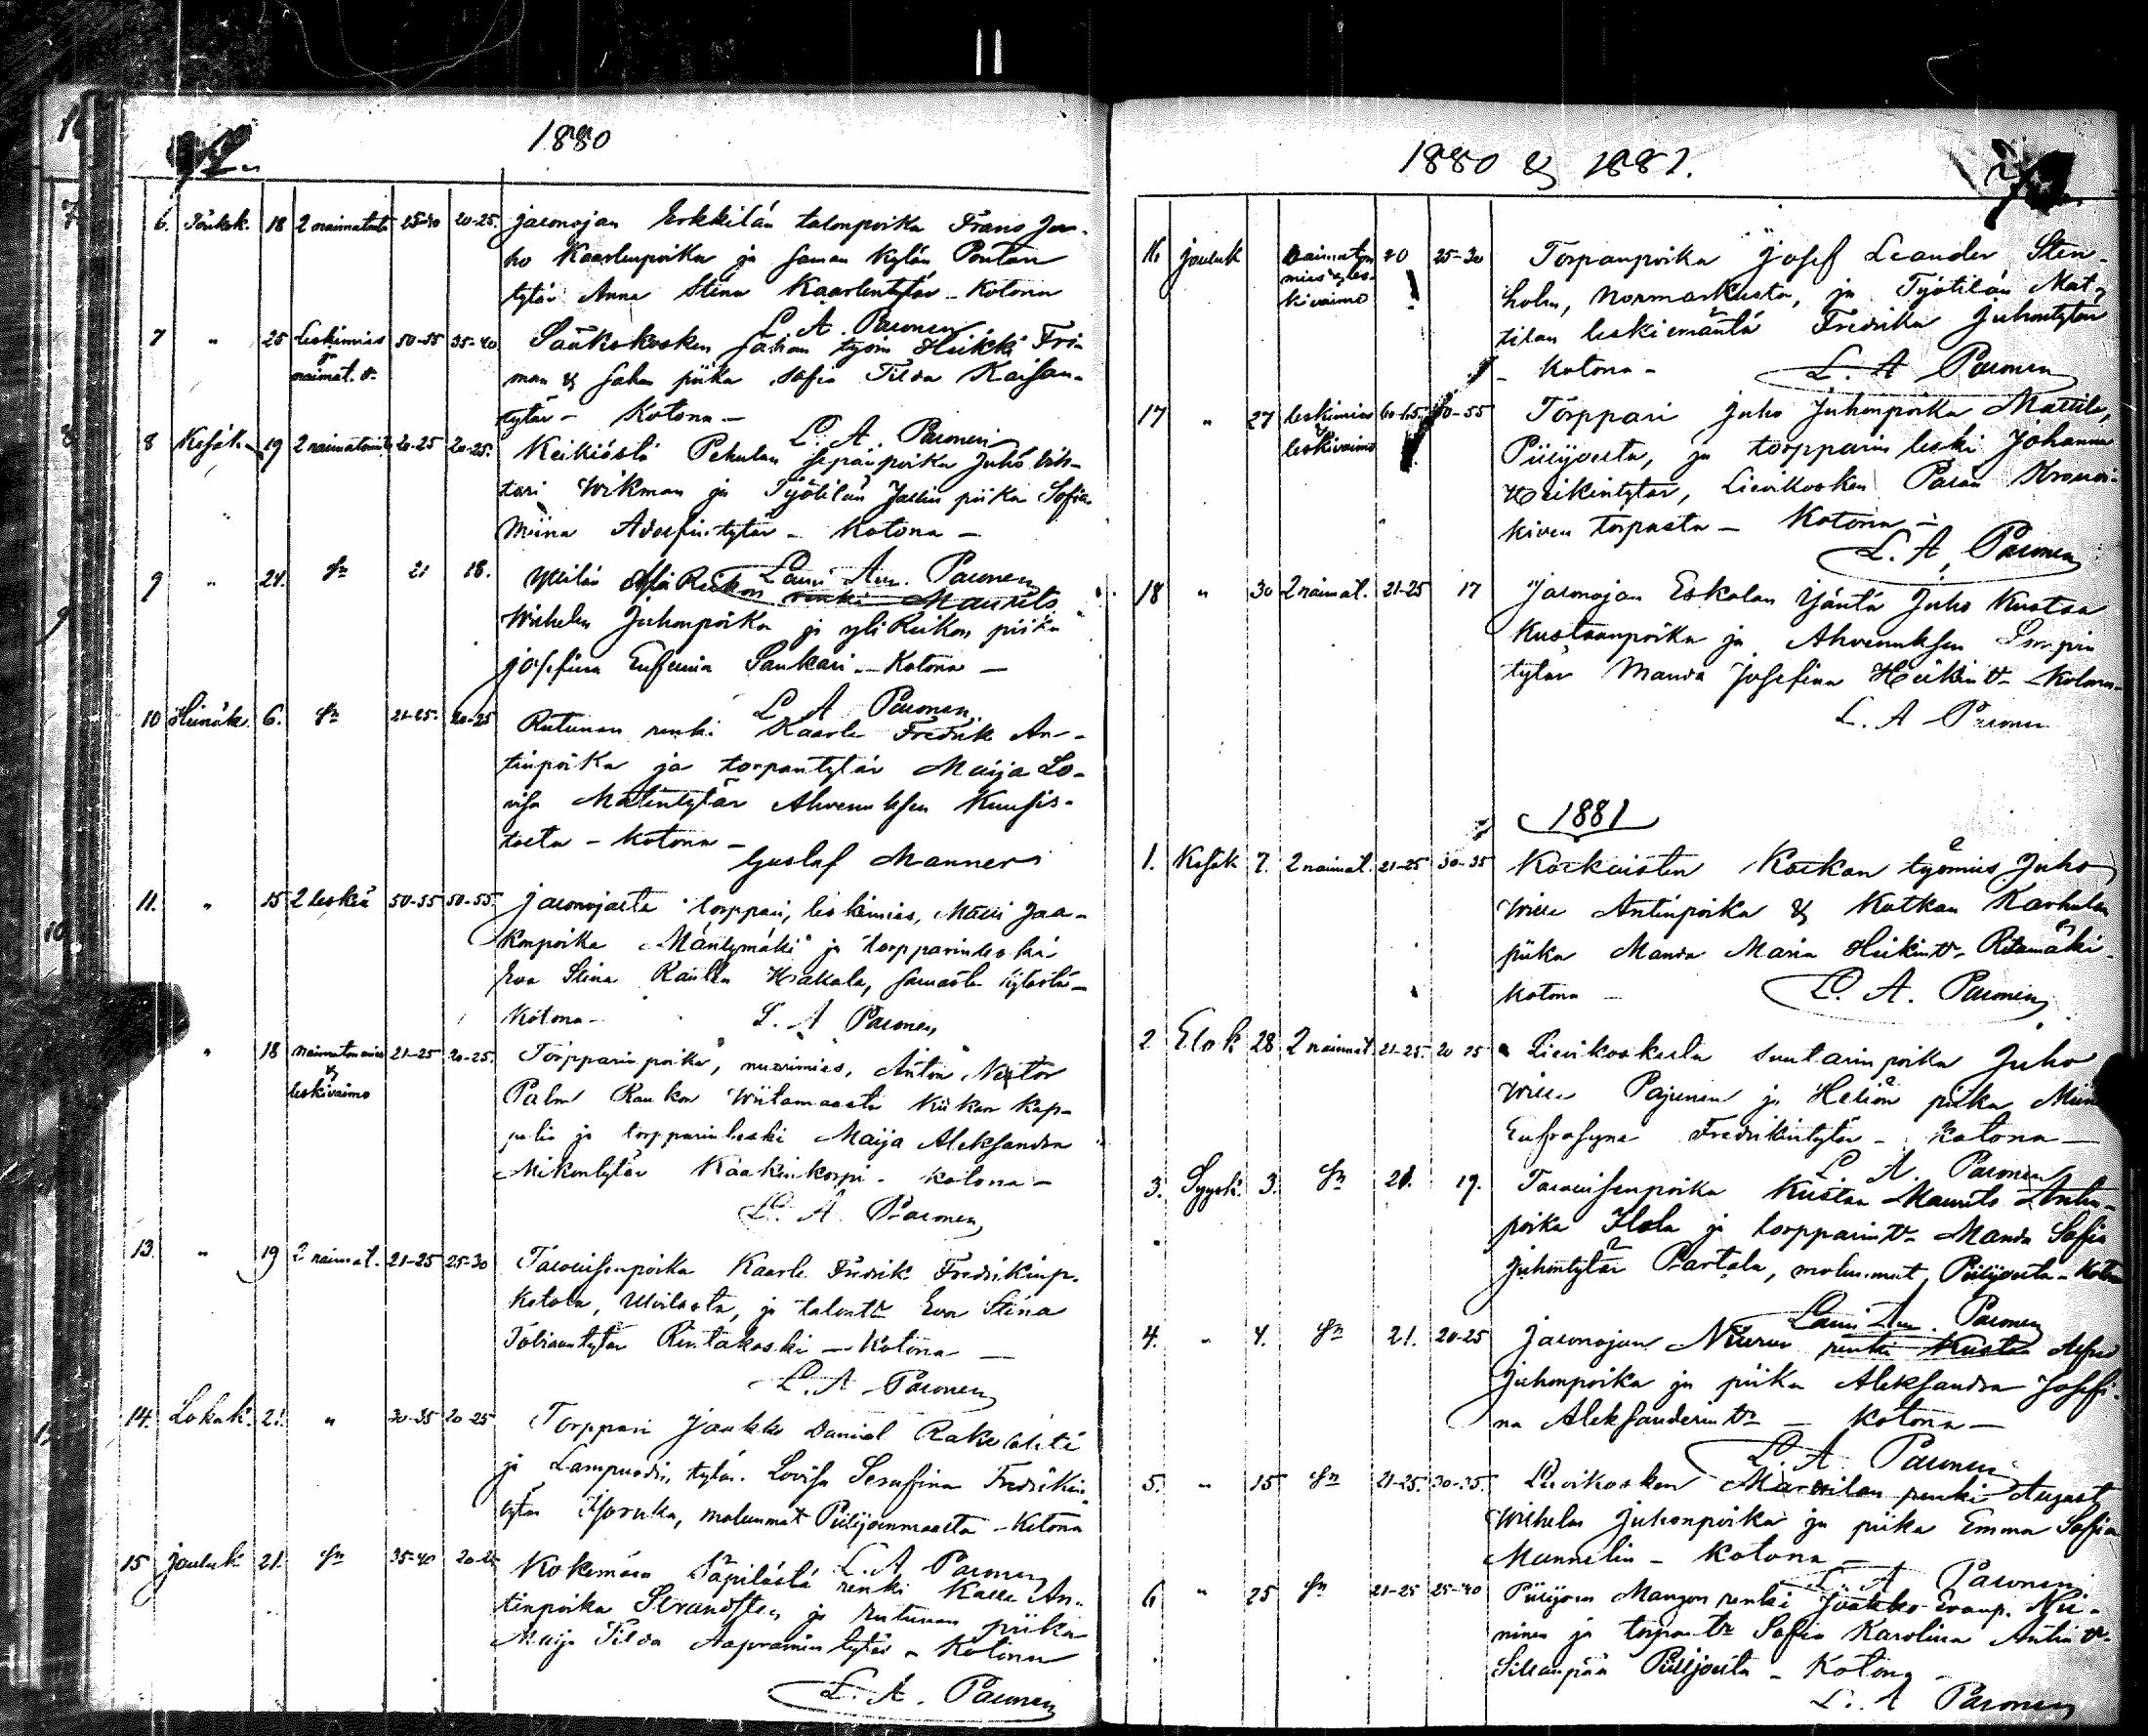 1880
6. Toukok. 18 2 naimatinta 25-30 20-25. Jaconojan Erkkilän talonpoika Frans Ju-
ho Kaarlenpoika ja saman kylän Pontan
tytär Anna Stina Kaarlentytär - Kotona
L. A. Paconen
7 " 25 Leskimies 50-55 35-40 Sääkskosken sahan työm. Heikki Fri-
& naimat. tr. man & sahan piika Sofia Tilda Kaisan-
tytär - Kotona -
L. A. Paconen
8 Kesäk. 19 2 naimatointa 20-25 20-25. Keikiöstä Pekulan sepänpoika Juhö Vih-
tori Wikman ja Työtilän Jallin piika Sofia
Miina Adolfintytär - Kotona -
Lauri Aug. Paconen
9 " 24. Sn 21 18. Yttilän Yli Reikon renki Maurits
Wilhelm Juhonpoika ja yli Reikon piika
Josefina Eufemia Saukari - Kotona -
L. A. Paconen
10 Heinäk. 6. Sn 21-25. 20-25 Rutunan renki Kaarle Fredrik An-
tinpoika ja torpantytär Maija Lo-
visa Matintytär Ahvenuksen Kuusis-
tosta - Kotona -
Gustaf Manner
11. " 15 2 leskiä 50-55 50-55. Jaconojasta torppari, leskimies, Matti Jaa-
konpoika Mäntymäki ja torpparinleski
Eva Stina Kallen Krakala, samasta kylästä -
Kotona -
L. A. Paconen
" 18 naimatonmies 21-25 20-25. Torpparinpoika, nuorimies, Anton Nestor
& leskivaimo Palm Raukon Wiitamaasta Kiikan Kap-
pelia ja torpparinleski Maija Aleksandra
Mikontytär Kaakinkorpi - kotona -
L. A. Paconen
13. " 19 2 naimat. 21-25 25-30 Tacouisenpoika Kaarle Fredrik Fredrikinp.
Katola, Ulvilasta, ja talontr Eva Stina
Tobiaantytär Rintakoski - Kotona -
L. A. Paconen
14. Lokak. 21. " 30-35 20-25 Torppari Jaakko Daniel Rakelahti
ja Lampuodin tytär Lovisa Serafina Fredrikin
tytär Yjoruka, molemmat Piilijoenmaasta - Kotona
L. A. Paconen
15 Jouluk. 21. Sn 35-40 20-25 Kokemäen Säpilästä renki Kalle An-
tinpoika Strandsten ja Rutunan piika
Maija Tilda Aapramintytär - Kotona
L. A. Paconen
1880 & 1881.
16 Jouluk naimaton 40 25-30 Torpanpoika Josef Leander Sten-
mies & les- holm, Normarkusta, ja Työtilän Mat-
kivaimo tilan leskiemäntä Fredrika Juhontytär
- Kotona -
L. A. Paconen
17 " 27 leskimies 60-65. 50-55 Torppari Juho Juhonpoika Mattila,
& leskivaimo Piilijoesta, ja torpparin leski Johanna
Heikintytär, Lievikosken Pacan
kiven torpasta - Kotona -
L. A. Paconen
18 " 30 2 naimat. 21-25 17 Jaconojan Eskolan Isäntä Juho Kustaa
Kustaanpoika ja Ahvenuksen Simpin
tytär Manda Josefina Heikintr - Kotona -
L. A. Paconen
1881
1. Kesäk 7. 2 naimat. 21-25 30-35 Kockoisten Kockon työmies Juho
Wille Antinpoika & Katkan Karhulan
piika Manda Maria Heikintr. Ritamäki -
Kotona -
L. A. Paconen
2 Elok 28 2 naimat. 21-25. 20-25 Lievikoskelta suutarinpoika Juho
Wille Pajunen ja Heliön piika Miina
Eufrosyne Fredrikintytär - Kotona -
L. A. Paconen
3. Syysk. 3. Sn 21. 19. Tacouisenpoika Kustaa Maurits Antin-
poika Ylola ja torpparintr. Manda Sofia
Juhontytär Partala, molemmat Piilijoesta - Kotona
Lauri Aug. Paconen
4. " 4. Sn 21. 20-25 Jaconojan Niurun renki Kustaa Alfred
Juhonpoika ja piika Aleksandra Josefi-
na Aleksanderintr - Kotona -
L. A. Paconen
5. " 15 Sn 21-25. 30-35. Lievikosken Marttilan renki August
Wilhelm Juhonpoika ja piika Emma Sofia
Mannelin - Kotona -
L. A. Paconen
6 " 25 Sn 21-25 25-30 Piilijoen Mangon renki Jaakko Evanp. Nii-
ninen ja torpantr Sofia Karolina Antintr.
Sillanpää Piilijoesta - Kotona -
L. A. Paconen